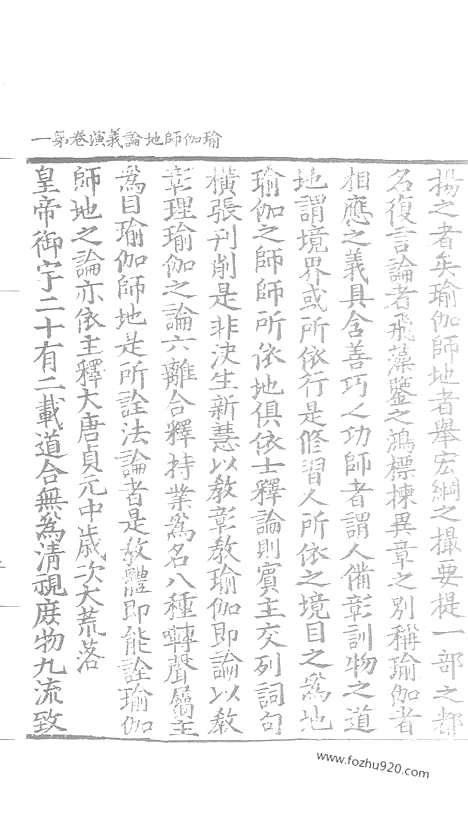 瑜伽師地論義演卷第一
揚之者矣瑜伽師地者舉宏綱之撮要提一部之都
名復言論者飛藻鑒之鴻標揀異章之別稱瑜伽者
相應之義具含善巧之功師者謂人備彰訓物之道
地謂境界或所依行是修習人所依之境目之為地
瑜伽之師師所依地俱依士釋論則賓主交列詞句
橫張刊削是非决生新慧以教彰教瑜伽即論以教
彰理瑜伽之論六離合釋持業為名八種囀聲屬主
為目瑜伽師地是所詮法論者是教體即能詮瑜伽
師地之論亦依主釋大唐貞元中歲次大荒落
皇帝御宇二十有二載道合無為清視庶物九流致
www.fozhu920.com